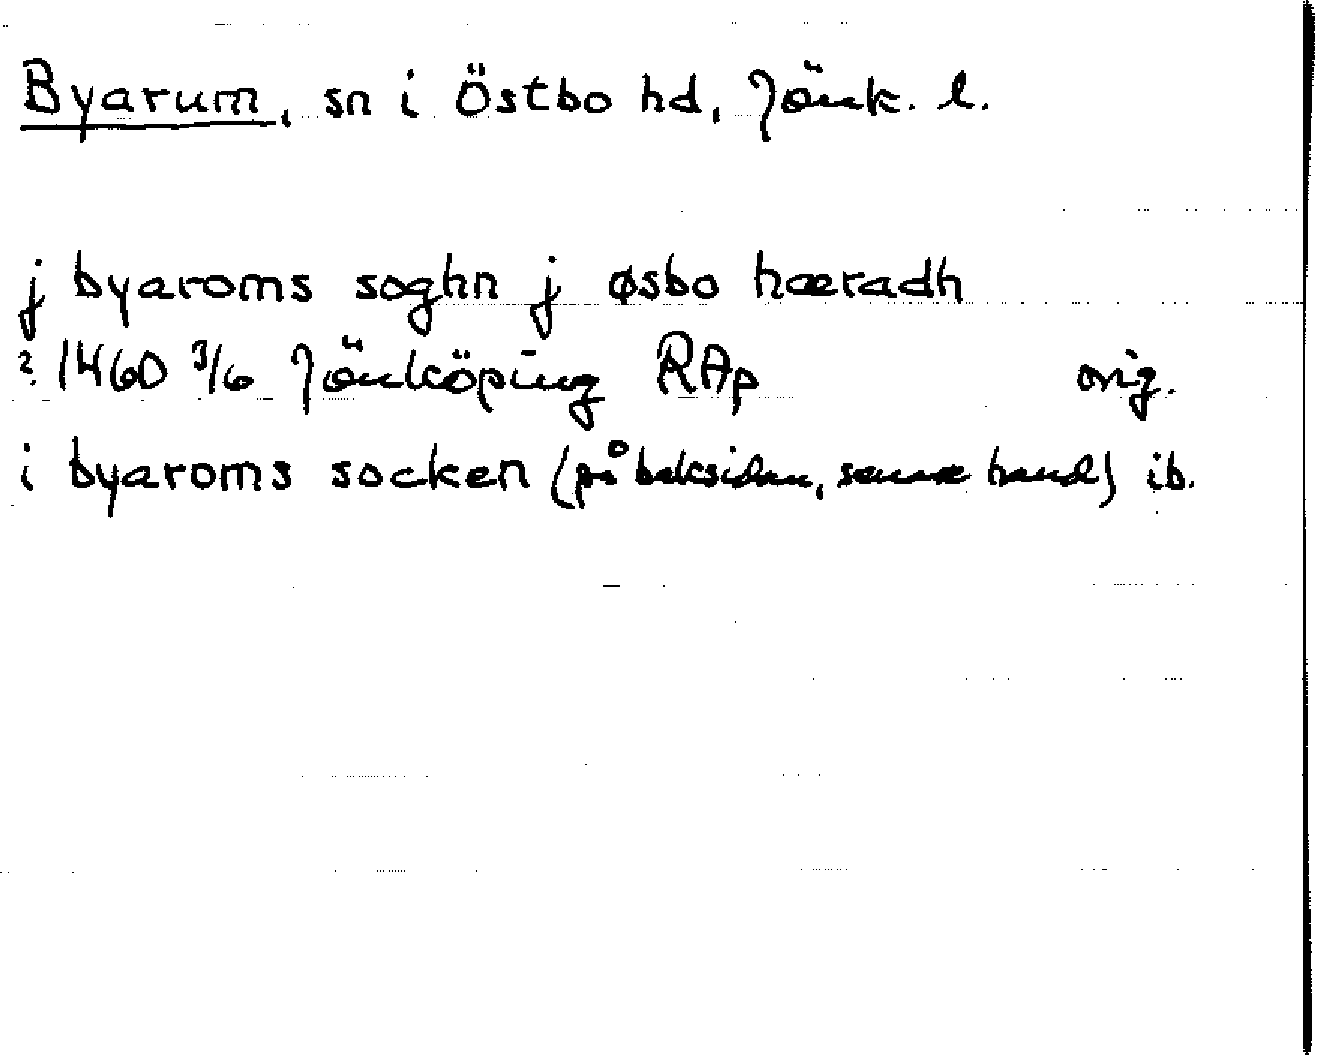 Byarum, sn i Östbo hd, Jönk. l.
j byaroms soghn j øsbo hæradh
? 1460 3/6 Jönköping RAp orig.
i byaroms socken (på baksidan, senare hand) ib.